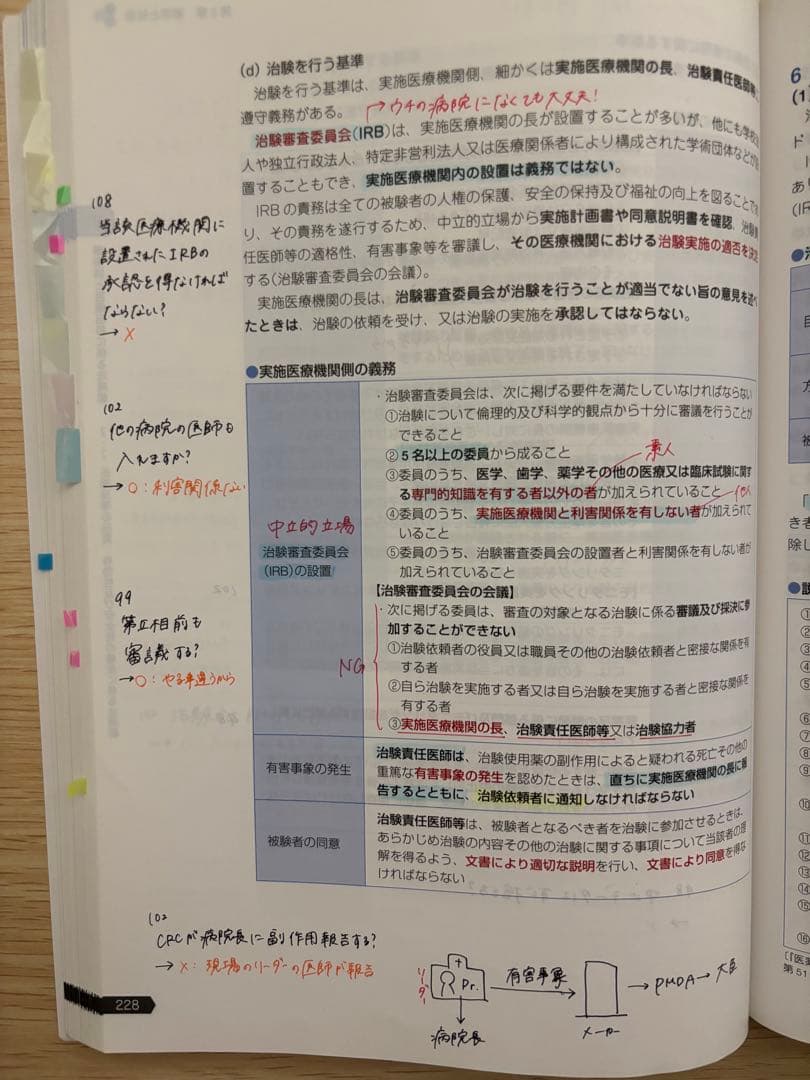 (d) 治験を行う基準
治験を行う基準は、実施医療機関側、細かくは実施医療機関の長、治験責任医師等に
遵守義務がある。
→ウチの病院になくても大丈夫!
治験審査委員会(IRB)は、実施医療機関の長が設置することが多いが、他にも学校法
人や独立行政法人、特定非営利法人又は医療関係者により構成された学術団体などが設
置することもでき、実施医療機関内の設置は義務ではない。
IRBの責務は全ての被験者の人権の保護、安全の保持及び福祉の向上を図ることであ
り、その責務を遂行するため、中立的立場から実施計画書や同意説明書を確認、治験責
任医師等の適格性、有害事象等を審議し、その医療機関における治験実施の適否を決定
する(治験審査委員会の会議)。
実施医療機関の長は、治験審査委員会が治験を行うことが適当でない旨の意見を述べ
たときは、治験の依頼を受け、又は治験の実施を承認してはならない。
108
当該医療機関に
設置されたIRBの
承認を得なければ
ならない?
→×
●実施医療機関側の義務
中立的立場
治験審査委員会
(IRB)の設置
・治験審査委員会は、次に掲げる要件を満たしていなければならない
①治験について倫理的及び科学的観点から十分に審議を行うことが
できること
②5名以上の委員から成ること
素人
③委員のうち、医学、歯学、薬学その他の医療又は臨床試験に関す
る専門的知識を有する者以外の者が加えられていること
他人
④委員のうち、実施医療機関と利害関係を有しない者が加えられて
いること
⑤委員のうち、治験審査委員会の設置者と利害関係を有しない者が
加えられていること
【治験審査委員会の会議】
・次に掲げる委員は、審査の対象となる治験に係る審議及び採決に参
加することができない
NG
①治験依頼者の役員又は職員その他の治験依頼者と密接な関係を有
する者
②自ら治験を実施する者又は自ら治験を実施する者と密接な関係を
有する者
③実施医療機関の長、治験責任医師等又は治験協力者
102
他の病院の医師も
入れますか?
→○:利害関係ない
99
第Ⅲ相前も
審議する?
→○:やる事違うから
有害事象の発生
治験責任医師は、治験使用薬の副作用によると疑われる死亡その他の
重篤な有害事象の発生を認めたときは、直ちに実施医療機関の長に報
告するとともに、治験依頼者に通知しなければならない
被験者の同意
治験責任医師等は、被験者となるべき者を治験に参加させるときは、
あらかじめ治験の内容その他の治験に関する事項について当該者の理
解を得るよう、文書により適切な説明を行い、文書により同意を得な
ければならない
102
CRCが病院長に副作用報告する?
→×:現場のリーダーの医師が報告
リーダー
Dr.
有害事象
メーカー
→PMDA→大臣
病院長
228
6